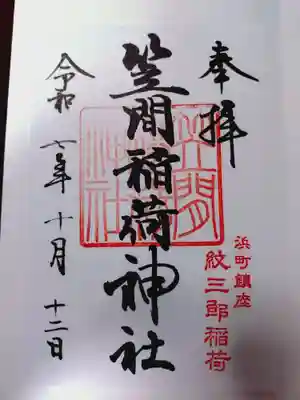 奉拝
浜町鎮座
紋三郎稲荷
笠間稲荷神社
令和七年十月十二日